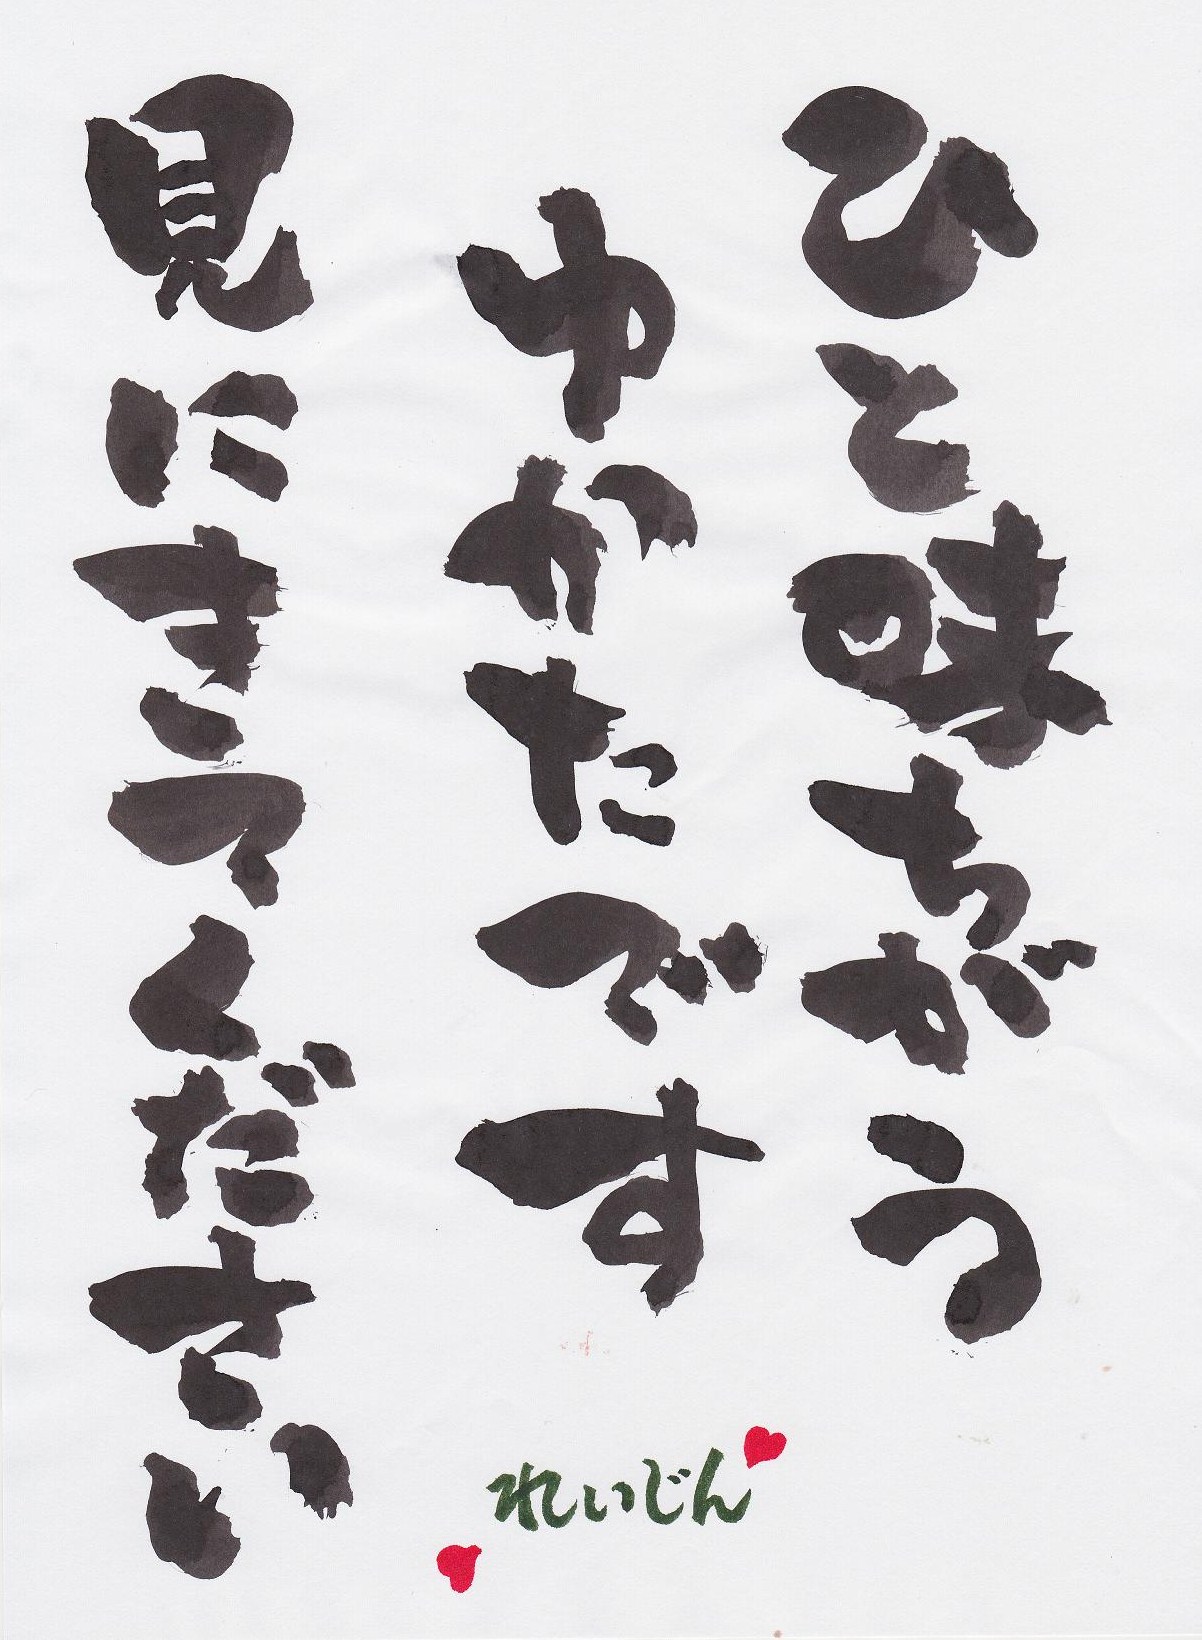 ひと味ちがう
ゆかたです
見にきてください
れいじん